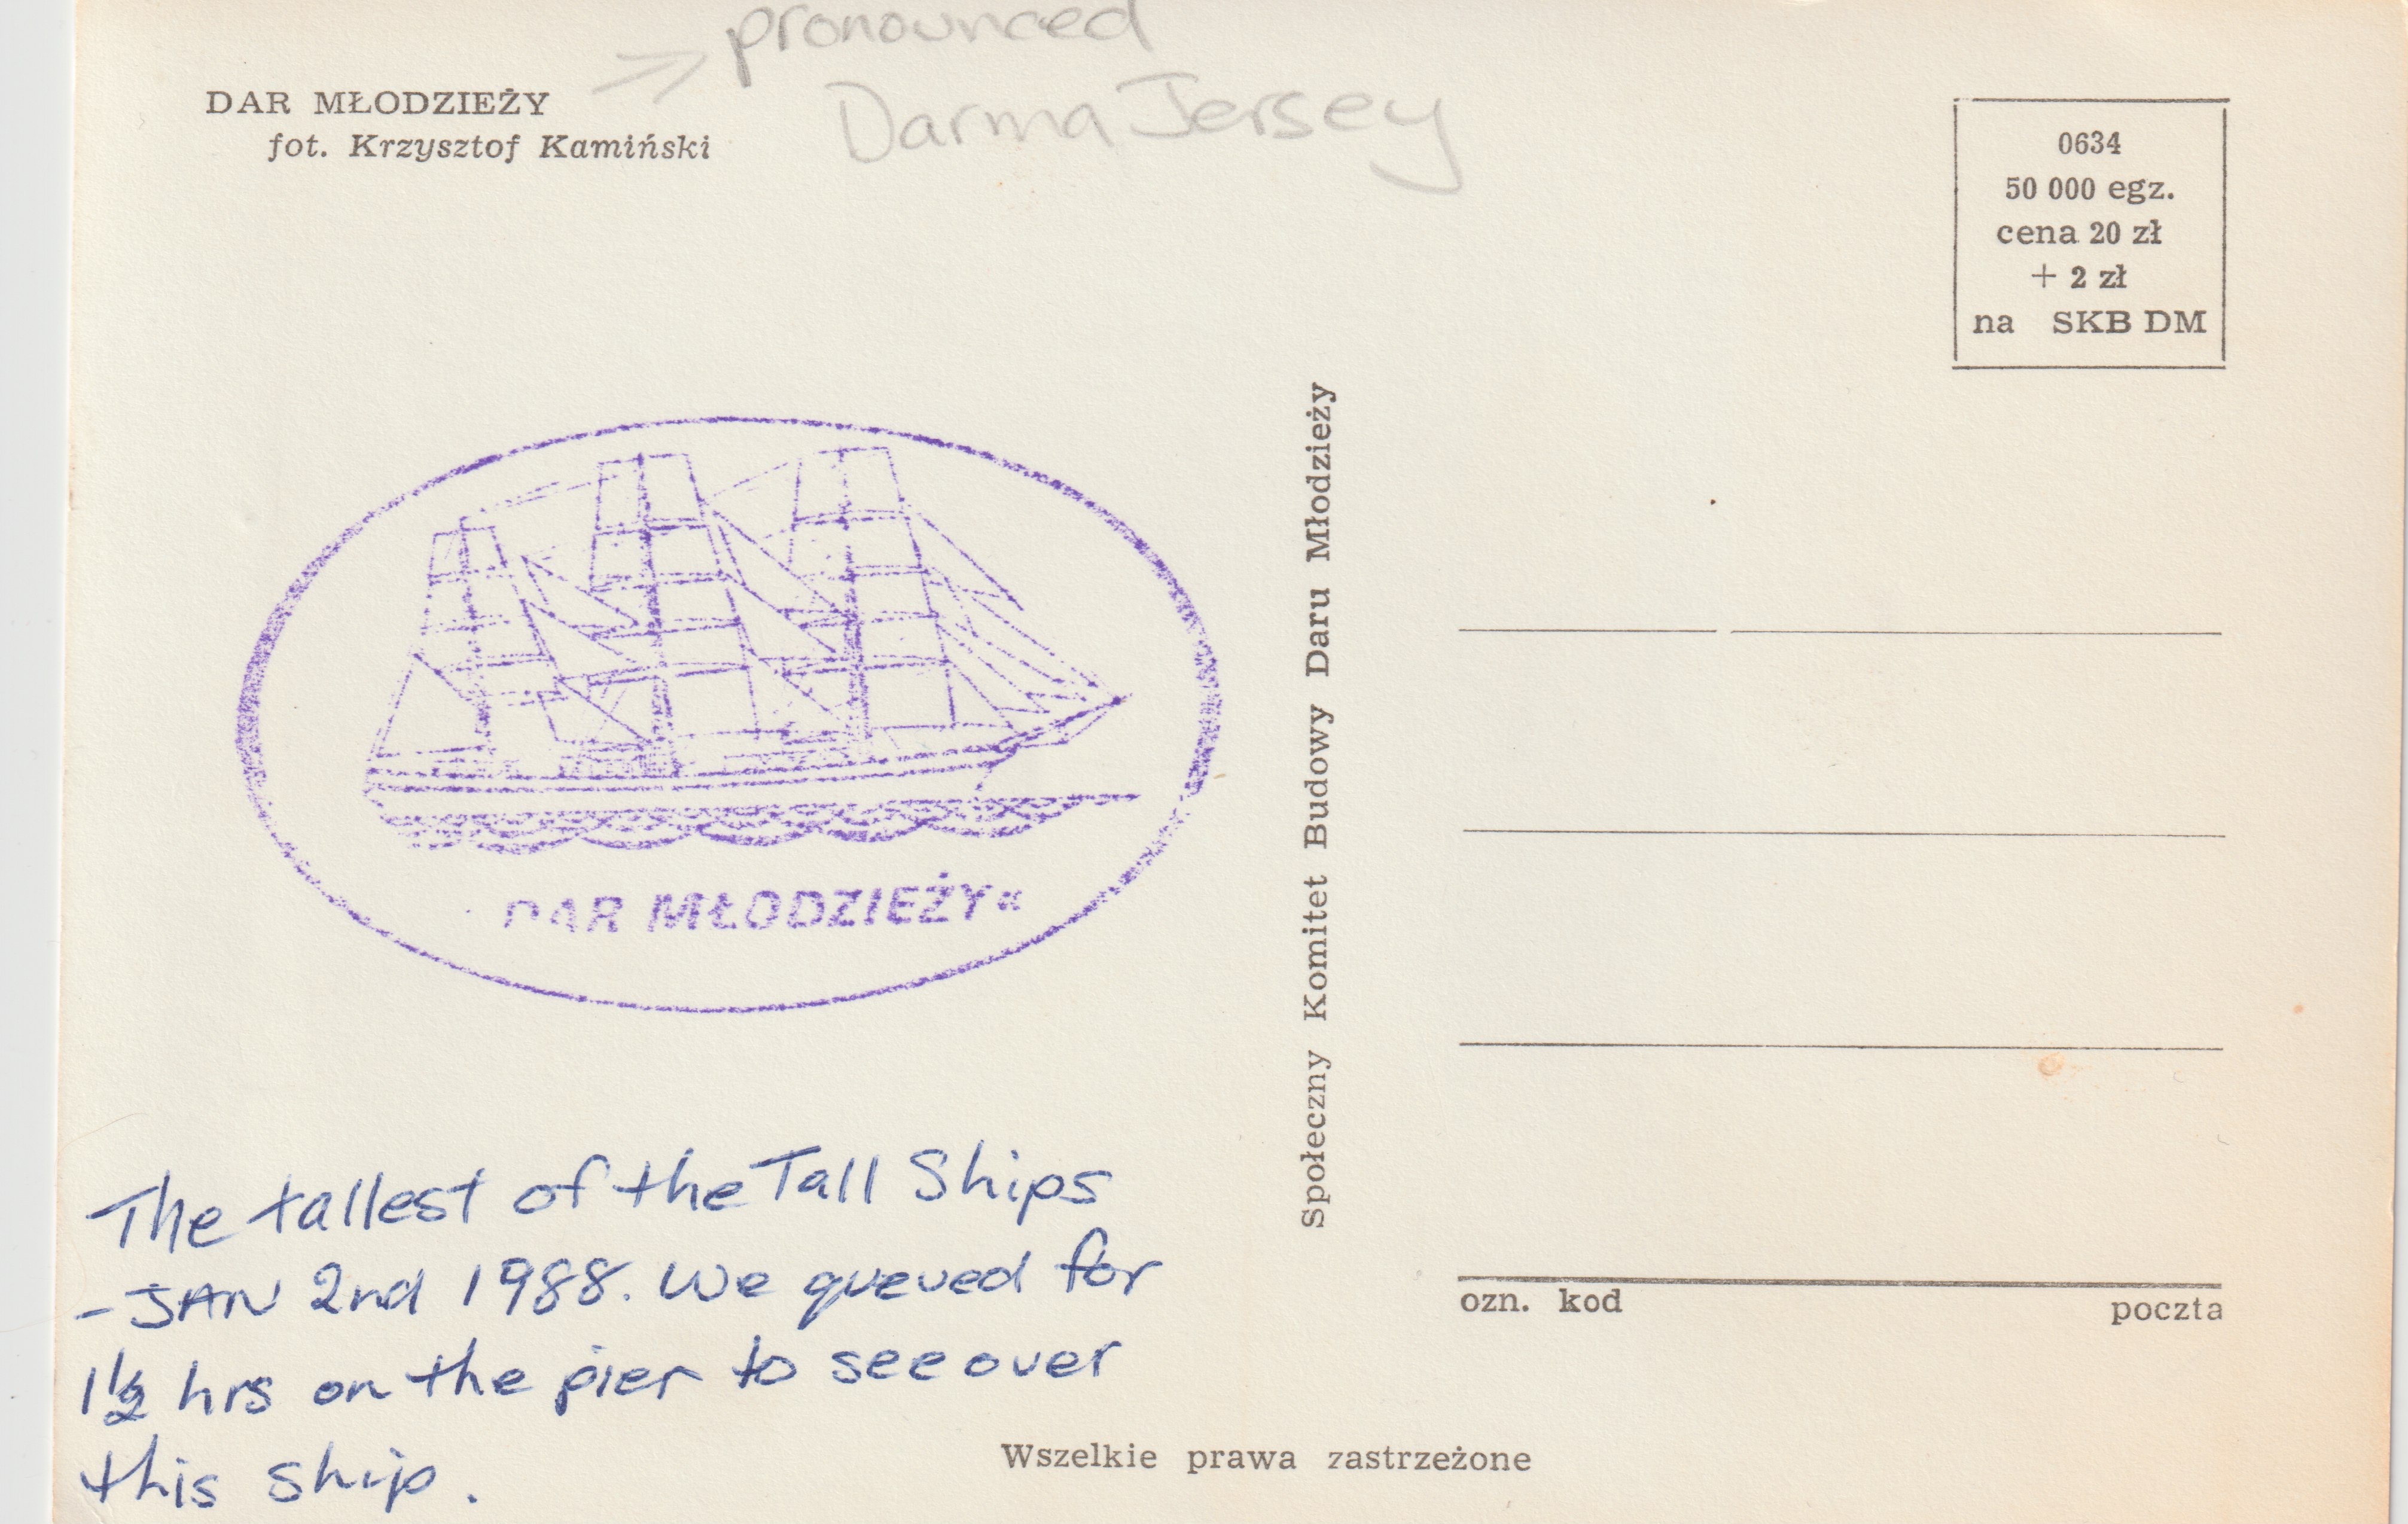 pronounced
Darma Jersey
DAR MŁODZIEŻY
fot. Krzysztof Kamiński
0634
50 000 egz.
cena 20 zł
+ 2 zł
na SKB DM
DAR MŁODZIEŻY"
Społeczny Komitet Budowy Daru Młodzieży
The tallest of the Tall Ships
- JAN 2nd 1988. We queued for
1½ hrs on the pier to see over
this ship.
ozn. kod
poczta
Wszelkie prawa zastrzeżone